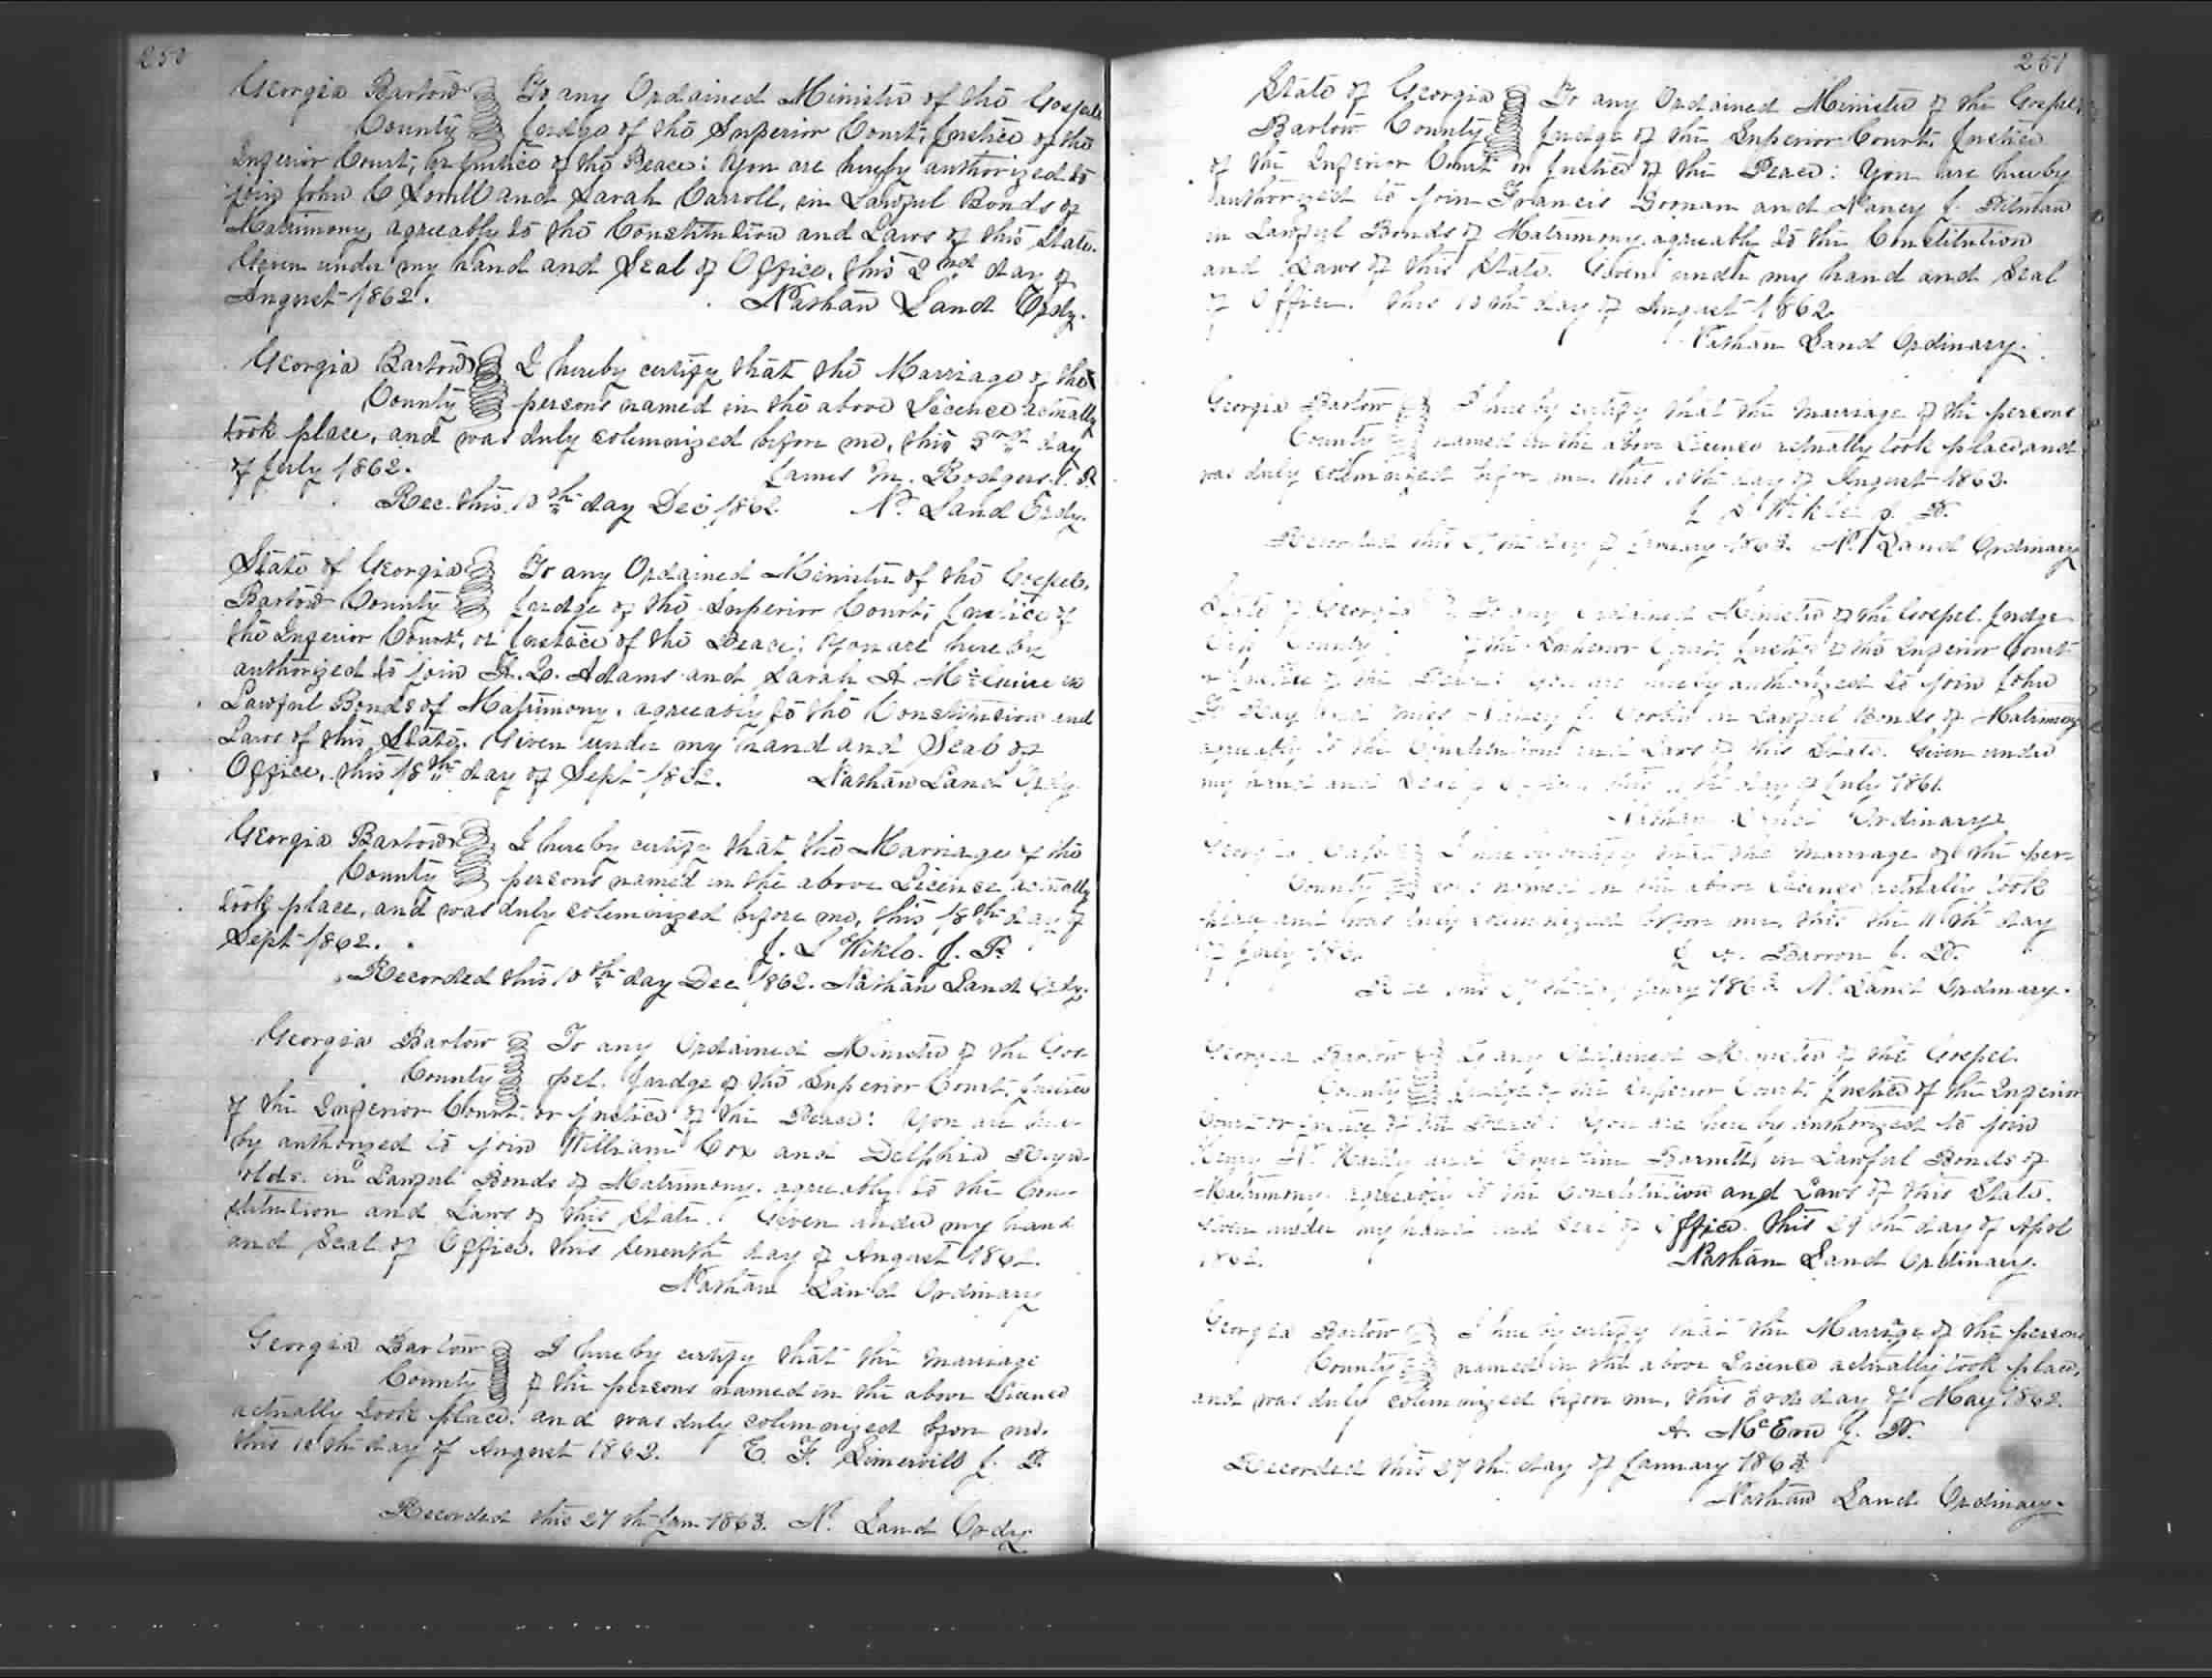 250
Georgia Bartow To any Ordained Minister of the Gospel,
County Judge of the Superior Court, Justice of the
Inferior Court, or Justice of the Peace: You are hereby authorized to
join John C and Sarah Carroll, in Lawful Bonds of
Matrimony, agreeably to the Constitution and Laws of this State.
Given under my hand and Seal of Office, this 2nd day of
August 1862. Nathan Land Ordy.
Georgia Bartow I hereby certify that the Marriage of the
County persons named in the above Licence actually
took place, and was duly solemnized before me, this 3rd day
of July 1862. James M. Rodgers J. P.
Rec. this 10th day Dec 1862 N. Land Ordy.
State of Georgia To any Ordained Minister of the Gospel,
Bartow County Judge of the Superior Court, Justice of
the Inferior Court, or Justice of the Peace; You are hereby
authorized to join Adams and Sarah A McGuire in
Lawful Bonds of Matrimony, agreeably to the Constitution and
Laws of this State. Given under my hand and Seal of
Office, this 18th day of Sept 1862. Nathan Land Ordy
Georgia Bartow I hereby certify that the Marriage of the
County persons named in the above Licence actually
took place, and was duly solemnized before me, this 18th day of
Sept 1862. J. L Wikle. J. P.
Recorded this 10th day Dec 1862. Nathan Land Ordy.
Georgia Bartow To any Ordained Minister of the Gos-
County pel. Judge of the Superior Court, Justice
of the Inferior Court, or Justice of the Peace: You are here-
by authorized to join William Cox and Delphia Reyn-
olds. in Lawful Bonds of Matrimony. agreeably to the Con-
stitution and Laws of this State. Given under my hand
and Seal of Office. this seventh day of August 1862.
Nathan Land Ordinary
Georgia Bartow I hereby certify that the marriage
County of the persons named in the above Licence
actually took place. and was duly solemnized before me.
this 10th day of August 1862. E. F. J. P.
Recorded this 27th Jan 1863. N. Land Ordy
251
State of Georgia To any Ordained Minister of the Gospel,
Bartow County Judge of the Superior Court, Justice
of the Inferior Court or Justice of the Peace: You are hereby
authorized to join Francis and Nancy J. Pitman
in Lawful Bonds of Matrimony, agreeably to the Constitution
and Laws of this State. Given under my hand and Seal
of Office. this 10th day of August 1862
Nathan Land Ordinary.
Georgia Bartow I hereby certify that the marriage of the persons
County named in the above Licence actually took place, and
was duly solemnized before me. this 10th day of August 1862.
J L Wikle J. P.
Recorded this 27th day of January 1863. N. Land Ordinary
State of Georgia To any Ordained Minister of the Gospel. Judge
County of the Superior Court, Justice of the Inferior Court
or Justice of the Peace: You are hereby authorized to join John
and Miss Nancy J. in Lawful Bonds of Matrimony
agreeably to the Constitution and Laws of this State. Given under
my hand and Seal of Office this day of July 1861.
Nathan Land Ordinary
Georgia I hereby certify that the marriage of the per-
County sons named in the above Licence actually took
place and was duly solemnized before me, this the 11th day
of July J. P.
Rec this 27th day Janry 1863 N. Land Ordinary.
Georgia Bartow To any Ordained Minister of the Gospel.
County Judge of the Superior Court, Justice of the Inferior
Court or Justice of the Peace: You are hereby authorized to join
Henry and Barnett, in Lawful Bonds of
Matrimony. agreeably to the Constitution and Laws of this State.
Given under my hand and Seal of Office. this 29th day of Apl
1862. Nathan Land Ordinary.
Georgia Bartow I hereby certify that the Marriage of the persons
County named in the above Licence actually took place,
and was duly solemnized before me, this 3rd day of May 1862.
A. J. P.
Recorded this 27th day of January 1863
Nathan Land Ordinary.